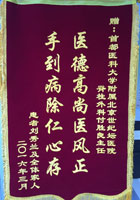 赠：首都医科大学附属北京世纪坛医院
脊柱外科付胜良主任
医德高尚医风正
手到病除仁心存
患者刘秀兰及全体家人
二〇一六年三月